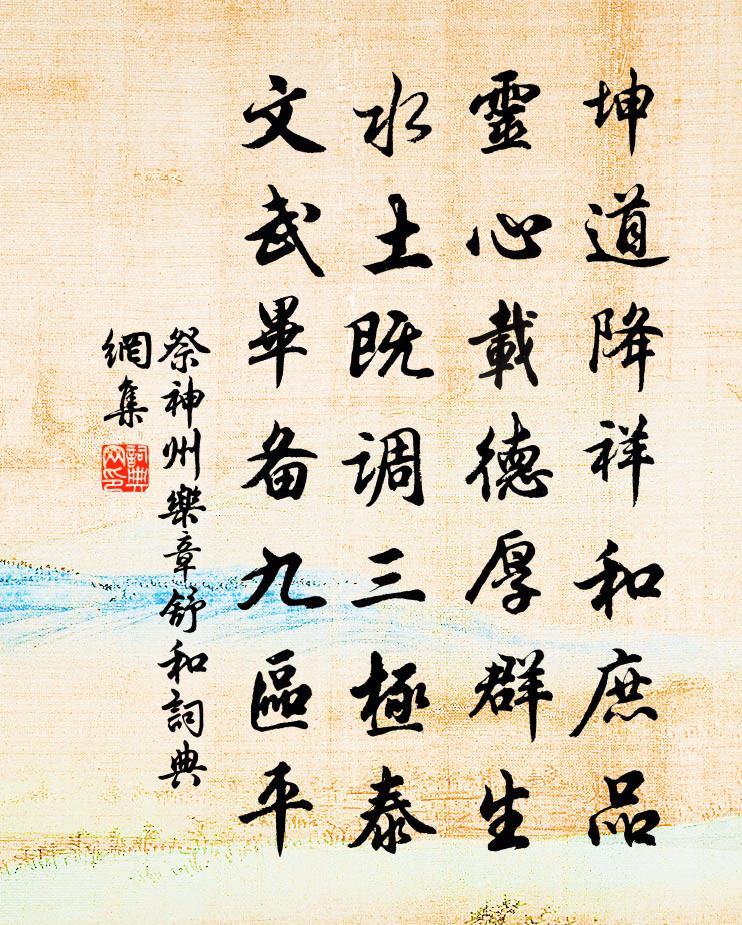 坤道降祥和庶品
靈心載德厚群生
水土既调三極泰
文武畢备九區平
祭神州樂章舒和詞典
網集
詞典
网印